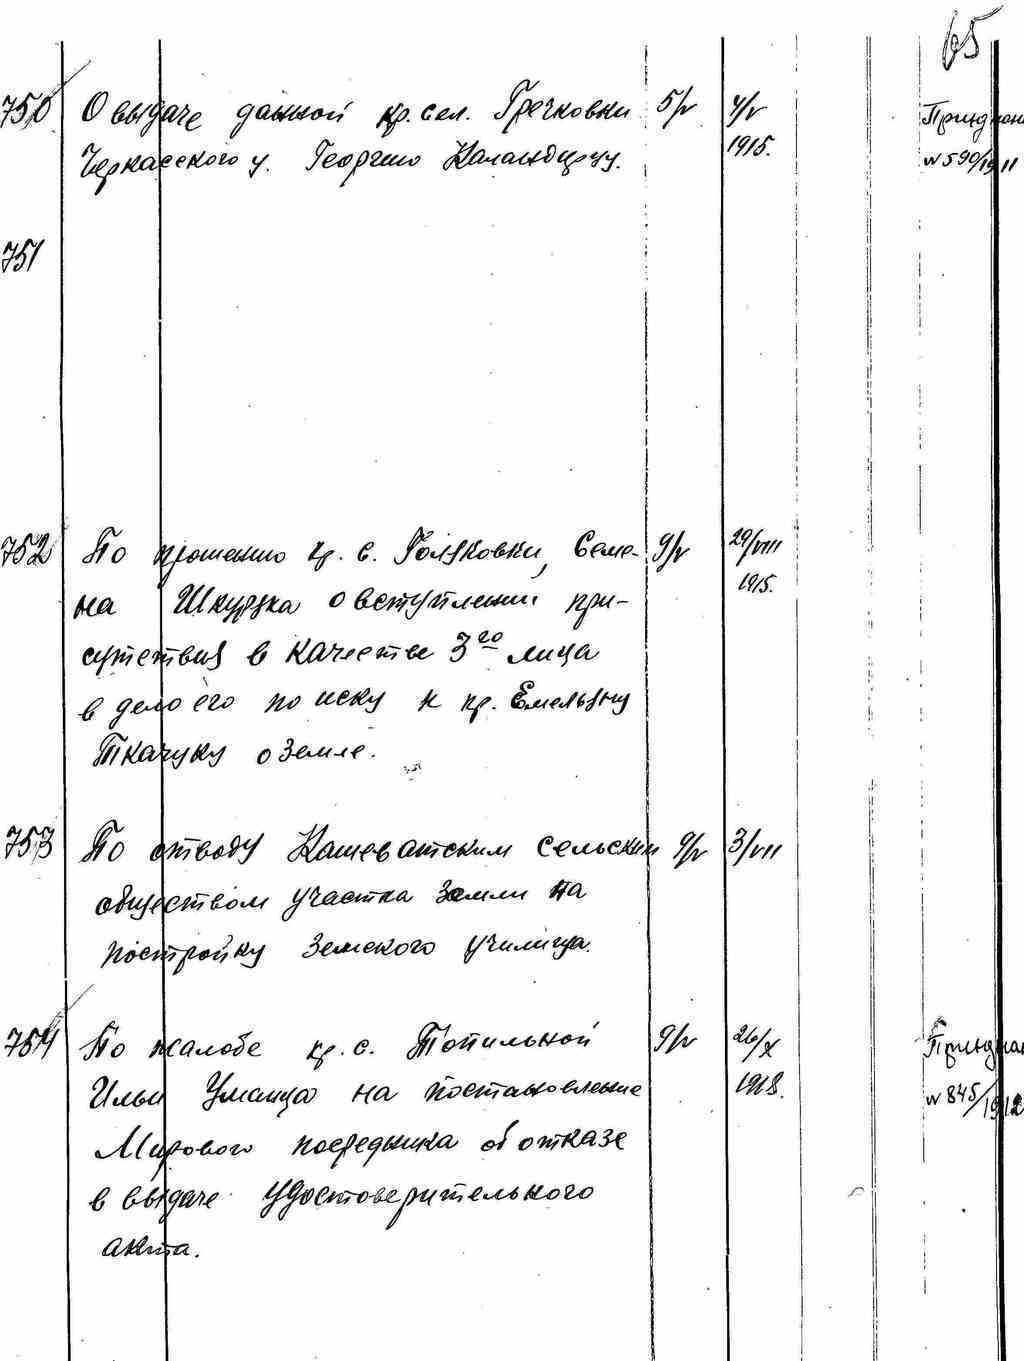 65
750 О выдаче данной кр. сел. Гречковки 5/V 4/V
Черкасского у. Георгию Каландырцу. 1915.
№ 590/1911
751
752 По прошению кр. с. Голяковки, Семе- 9/V 29/VIII
на Шкурука о вступлении при- 1915.
сутствия в качестве 3го лица
в дело его по иску к кр. Емельяну
Ткачуку о земле.
753 По отводу Кашеватским сельским 9/V 3/VII
обществом участка земли на
постройку земского училища.
754 По жалобе кр. с. Топильной 9/V 26/X
Ильи Уманца на постановление 1918.
№ 845/1912
Мирового посредника об отказе
в выдаче удостоверительного
акта.